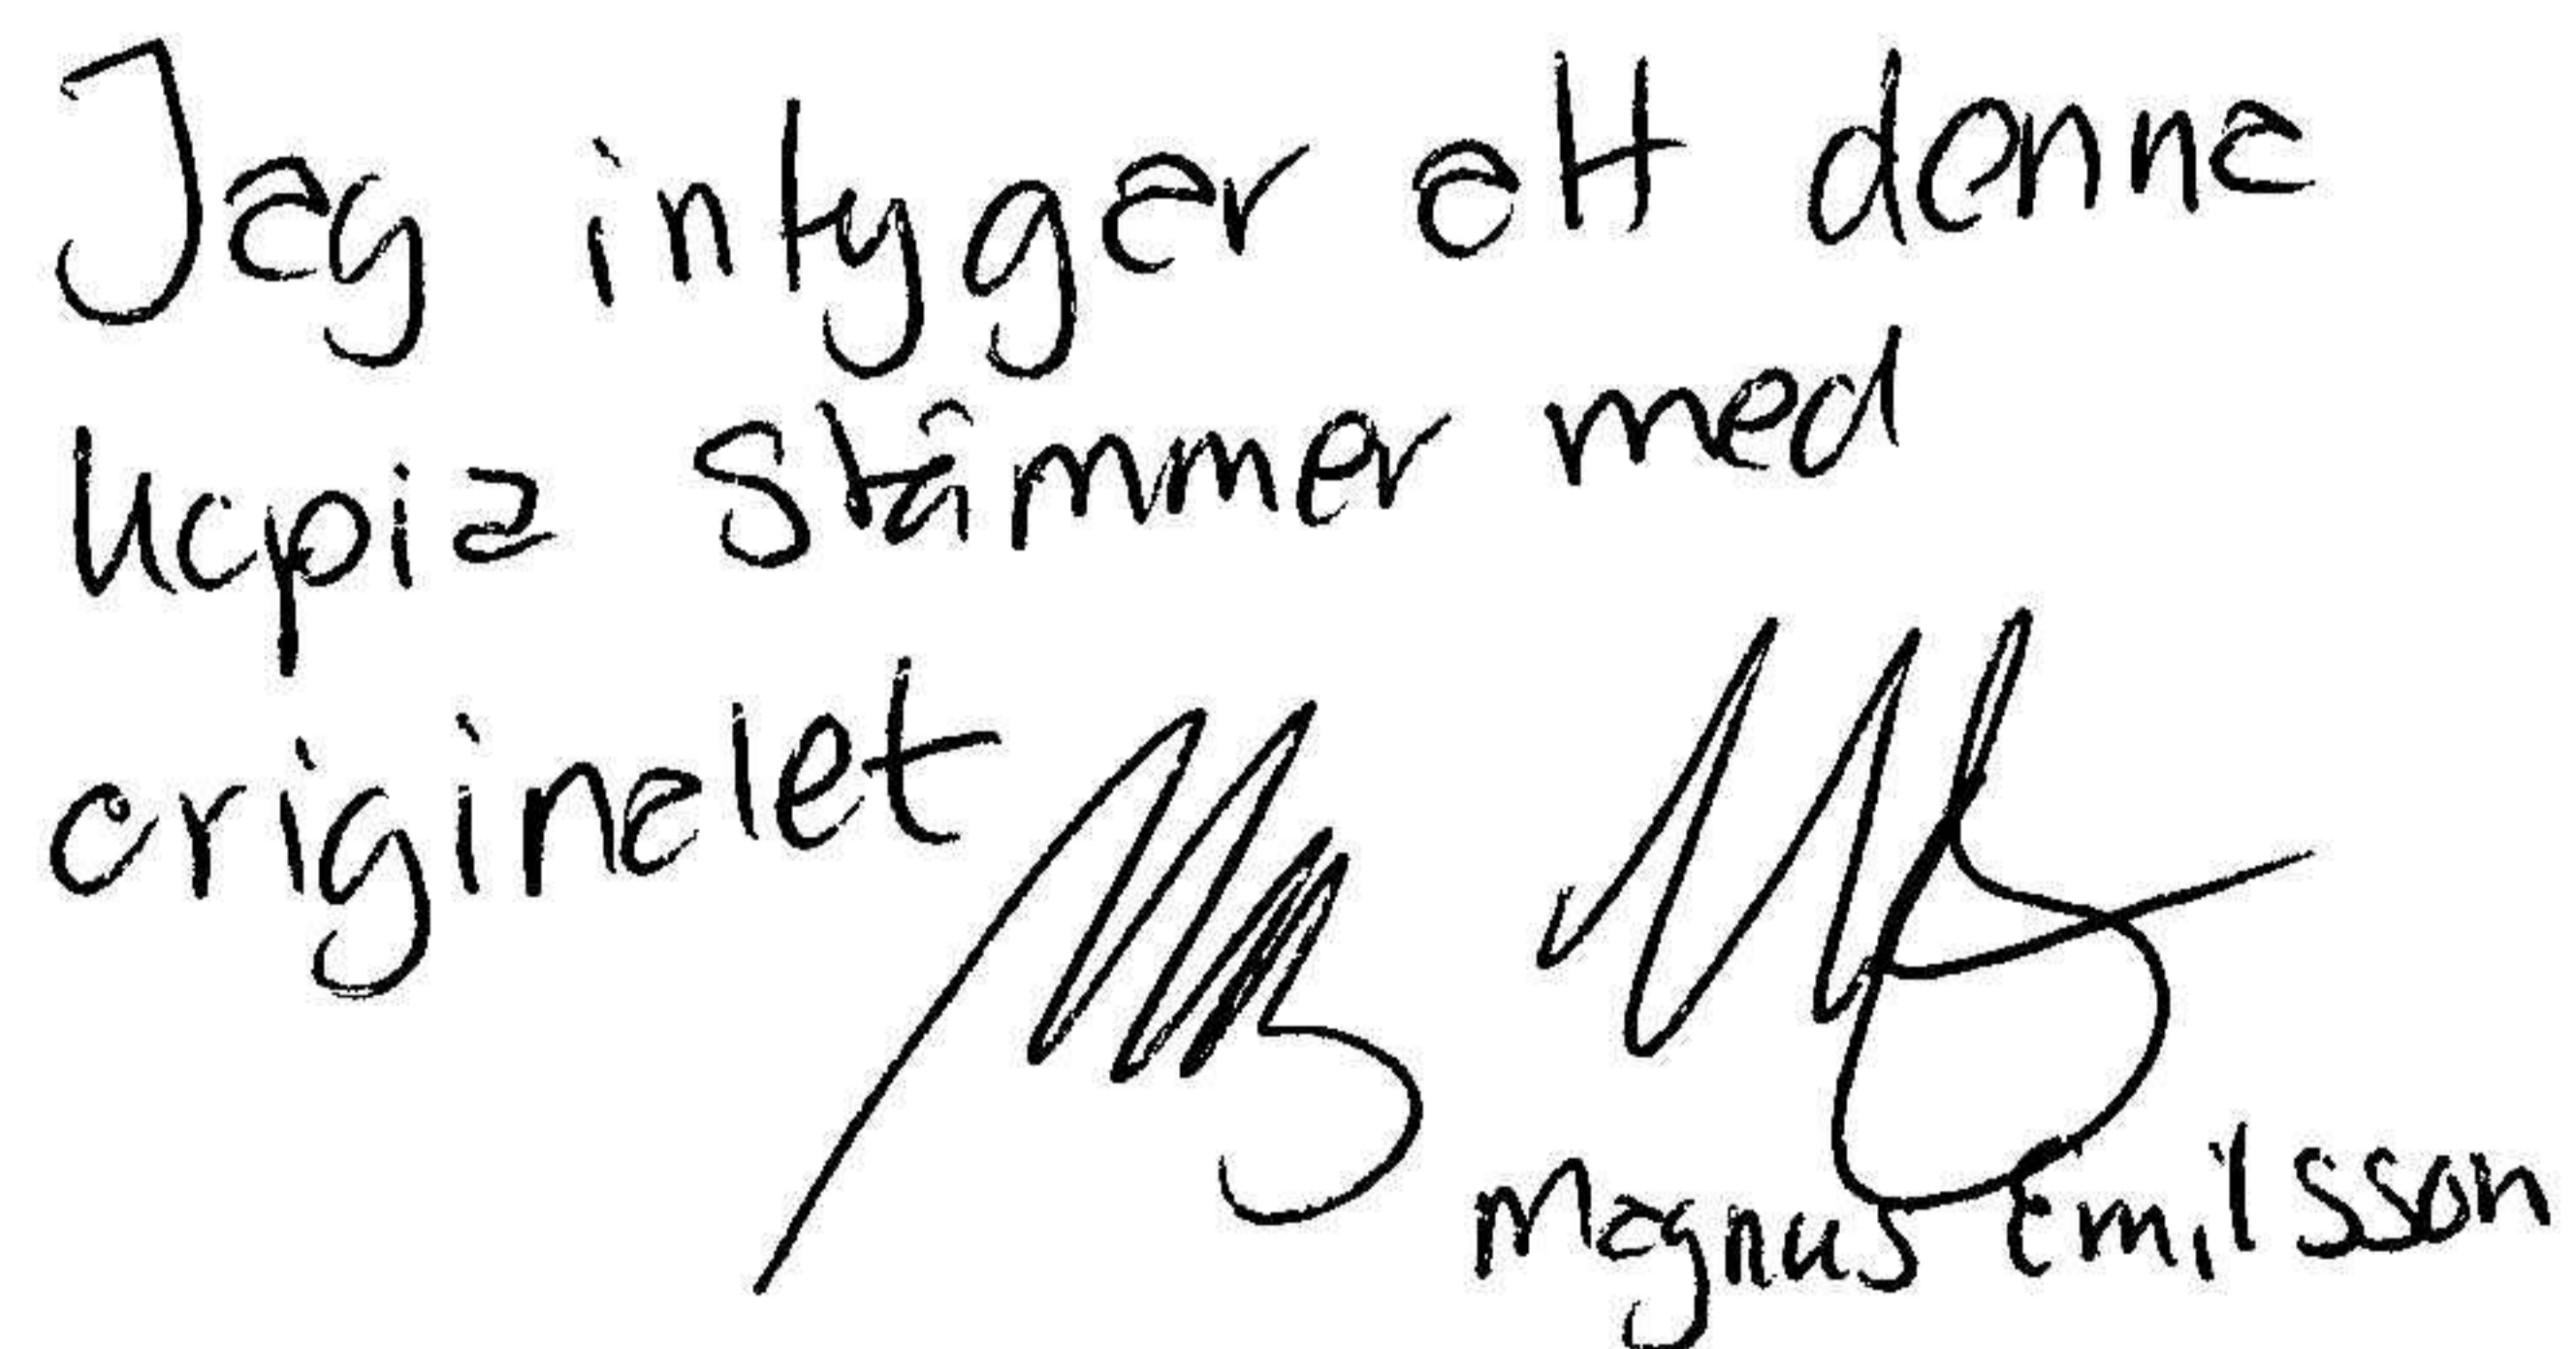 Jag intygar att denna
kopia stämmer med
originalet
Magnus Emilsson